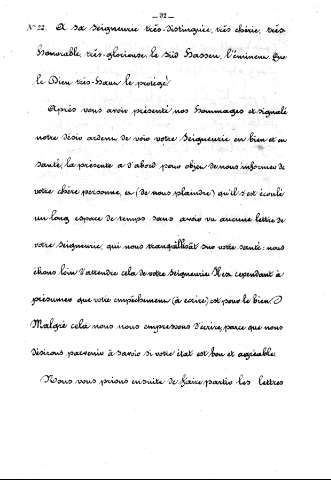 — 32 —
N° 22. A sa Seigneurie très-distinguée, très chérie, très-
honorable, très-glorieuse, le Sid Hassen, l'éminent. Que
le Dieu très-haut le protège!
Après vous avoir présenté nos hommages et signalé
notre désir ardent de voir votre Seigneurie en bien et en
santé, la présente a d'abord pour objet de nous informer de
votre chère personne, et (de nous plaindre) qu'il s'est écoulé
un long espace de temps sans avoir vu aucune lettre de
votre Seigneurie, qui nous tranquillisât sur votre santé: nous
étions loin d'attendre cela de votre Seigneurie. Il est cependant à
présumer que votre empêchement (à écrire) est pour le bien.
Malgré cela nous nous empressons d'écrire, parce que nous
désirons parvenir à savoir si votre état est bon et agréable.
Nous vous prions ensuite de faire partir les lettres